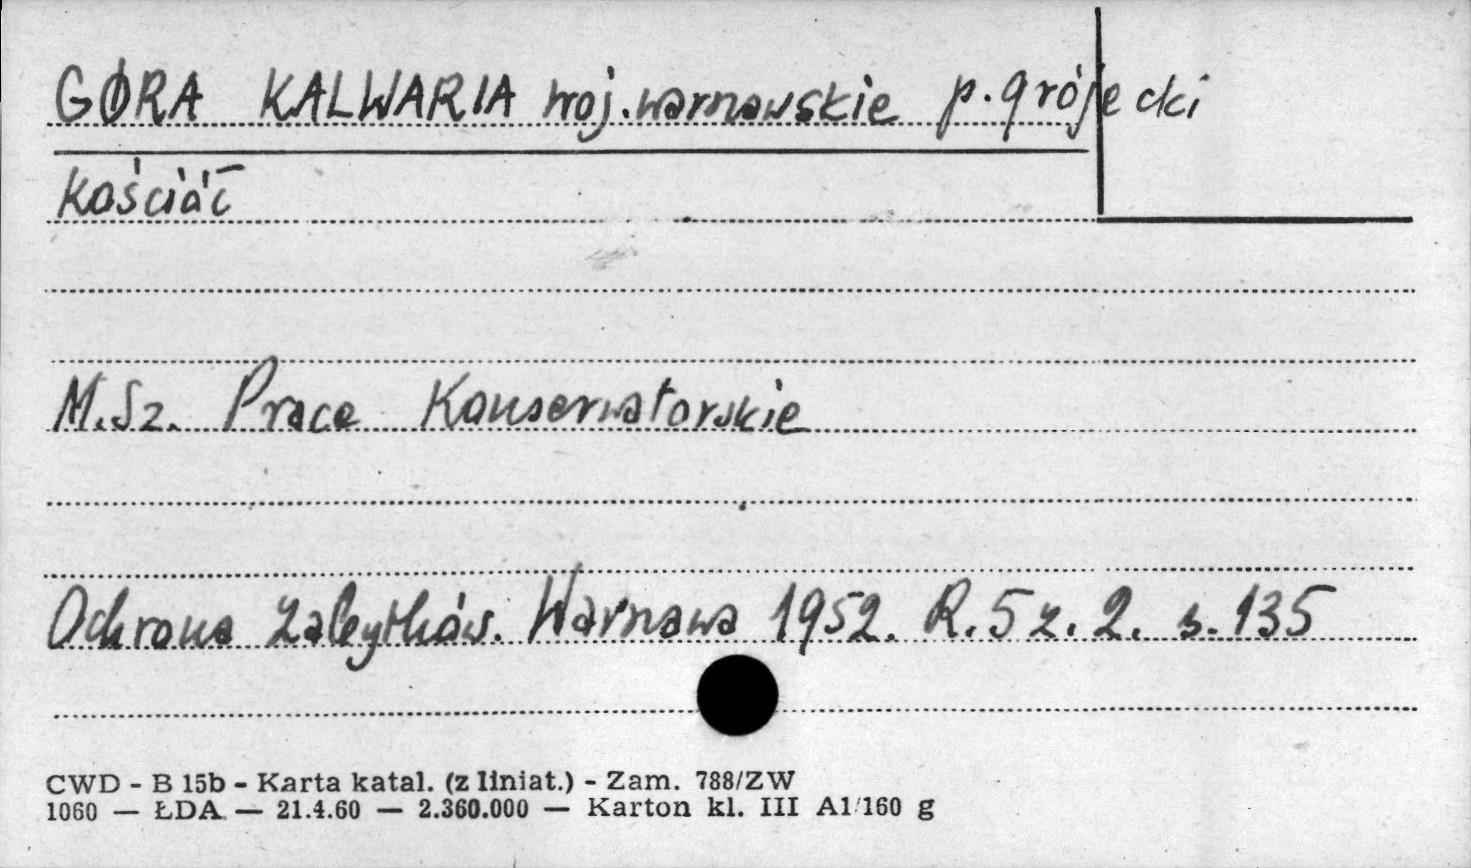 GÓRA KALWARIA woj. warszawskie p. grójecki
Kościół
M.Sz. Prace Konserwatorskie
Ochrona Zabytków. Warszawa 1952. R. 5 z. 2. s. 135
CWD - B 15b - Karta katal. (z liniat.) - Zam. 788/ZW
1060 — ŁDA — 21.4.60 — 2.360.000 — Karton kl. III A1/160 g